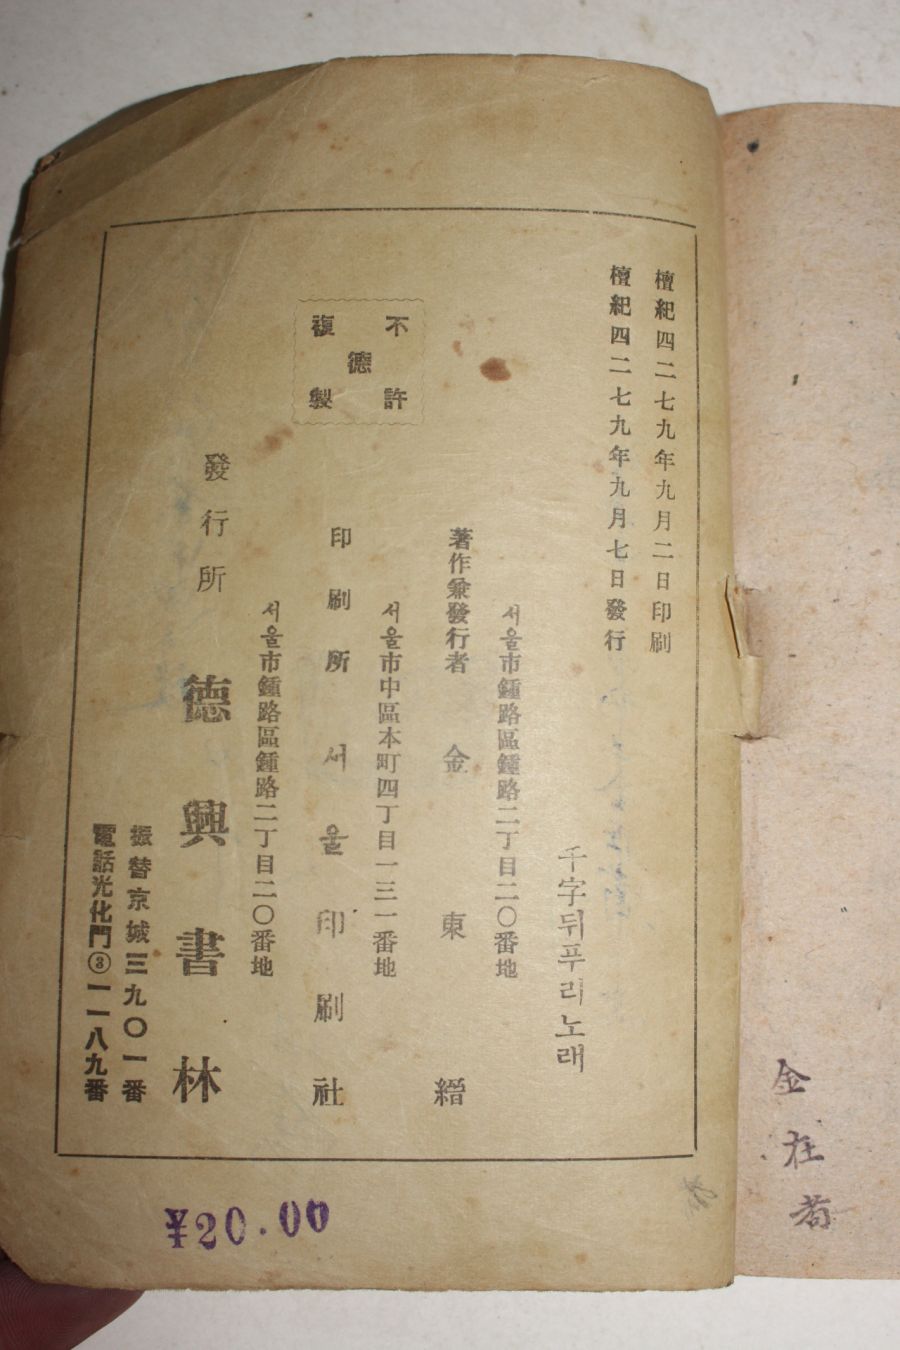 檀紀四二七九年九月二日印刷
檀紀四二七九年九月七日發行
千字뒤푸리노래
서울市鍾路區鍾路二丁目二〇番地
著作兼發行者 金東縉
서울市中區本町四丁目一三一番地
印刷所 서울印刷社
不許複製
德
서울市鍾路區鍾路二丁目二〇番地
發行所 德興書林
振替京城三九〇一番
電話光化門③一一八九番
¥20.00
金在